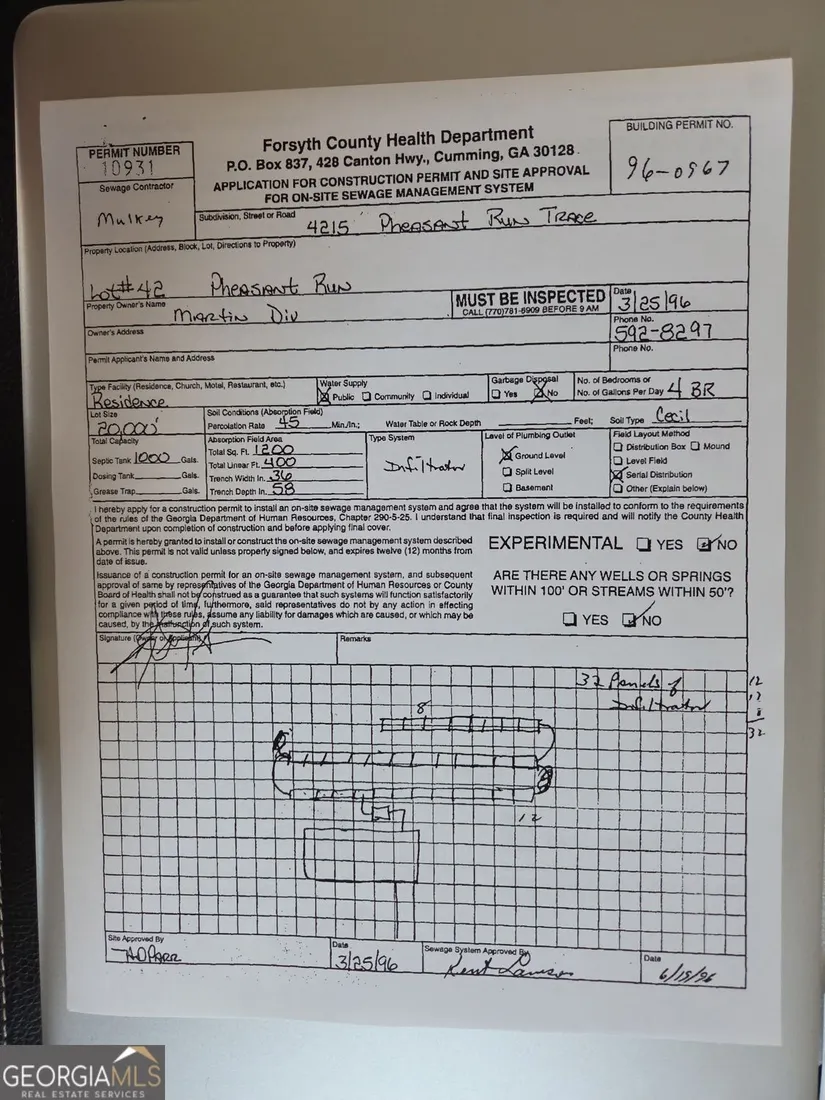 PERMIT NUMBER
10931
Forsyth County Health Department
P.O. Box 837, 428 Canton Hwy., Cumming, GA 30128
APPLICATION FOR CONSTRUCTION PERMIT AND SITE APPROVAL
FOR ON-SITE SEWAGE MANAGEMENT SYSTEM
BUILDING PERMIT NO.
96-0967
Sewage Contractor
Mulkey
Subdivision, Street or Road
4215 Pheasant Run Trace
Property Location (Address, Block, Lot, Directions to Property)
Lot#42 Pheasant Run
Property Owner's Name
Martin Div
MUST BE INSPECTED
CALL (770)781-6909 BEFORE 9 AM
Date
3/25/96
Owner's Address
Phone No.
592-8297
Permit Applicant's Name and Address
Phone No.
Type Facility (Residence, Church, Motel, Restaurant, etc.)
Residence
Water Supply
Public Community Individual
Garbage Disposal
Yes No
No. of Bedrooms or
No. of Gallons Per Day 4 BR
Lot Size
20,000'
Soil Conditions (Absorption Field)
Percolation Rate 45 Min./In.; Water Table or Rock Depth Feet; Soil Type Cecil
Total Capacity
Septic Tank 1000 Gals.
Dosing Tank Gals.
Grease Trap Gals.
Absorption Field Area
Total Sq. Ft. 1200
Total Linear Ft. 400
Trench Width In. 36
Trench Depth In. 58
Type System
Infiltrator
Level of Plumbing Outlet
Ground Level
Split Level
Basement
Field Layout Method
Distribution Box Mound
Level Field
Serial Distribution
Other (Explain below)
I hereby apply for a construction permit to install an on-site sewage management system and agree that the system will be installed to conform to the requirements
of the rules of the Georgia Department of Human Resources, Chapter 290-5-25. I understand that final inspection is required and will notify the County Health
Department upon completion of construction and before applying final cover.
A permit is hereby granted to install or construct the on-site sewage management system described
above. This permit is not valid unless properly signed below, and expires twelve (12) months from
date of issue.
EXPERIMENTAL YES NO
Issuance of a construction permit for an on-site sewage management system, and subsequent
approval of same by representatives of the Georgia Department of Human Resources or County
Board of Health shall not be construed as a guarantee that such systems will function satisfactorily
for a given period of time, furthermore, said representatives do not by any action in effecting
compliance with these rules, assume any liability for damages which are caused, or which may be
caused, by the malfunction of such system.
ARE THERE ANY WELLS OR SPRINGS
WITHIN 100' OR STREAMS WITHIN 50'?
YES NO
Signature (Owner or Applicant)
Remarks
32 Panels of
Infiltrator
12
12
8
32
8
12
Site Approved By
Date
3/25/96
Sewage System Approved By
Kent Lawson
Date
6/19/96
GEORGIAMLS
REAL ESTATE SERVICES